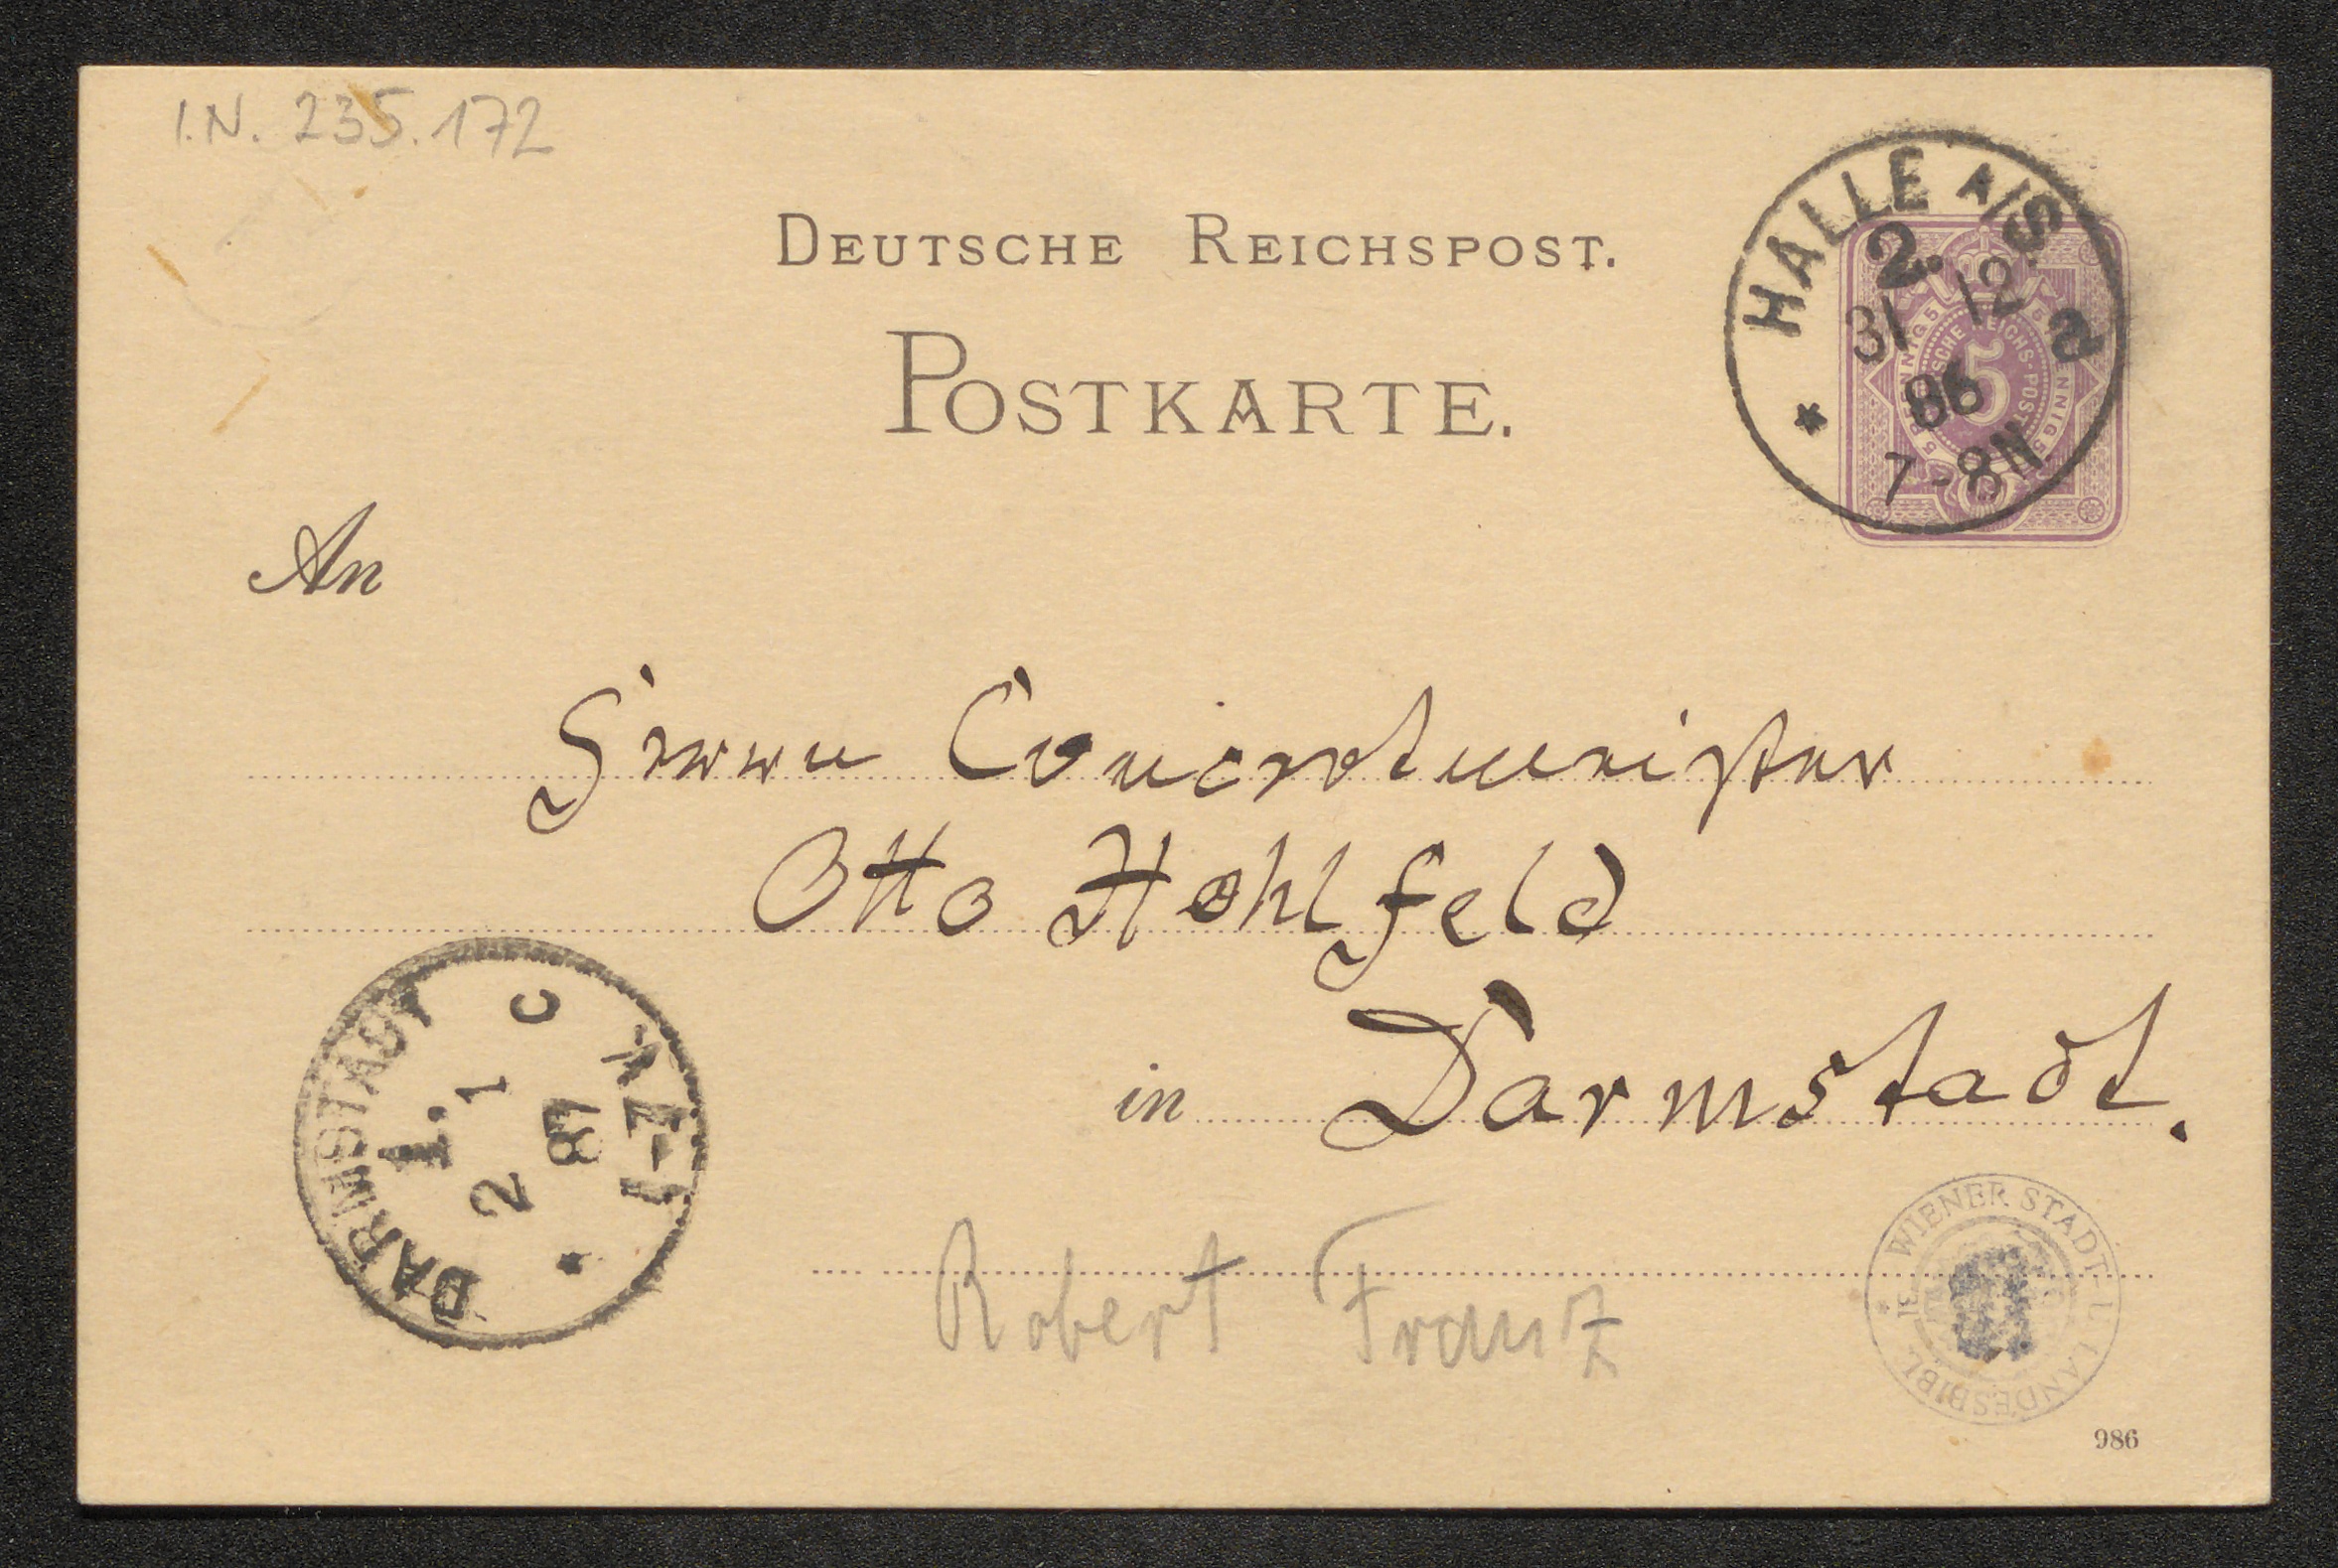 I.N. 235.172
DEUTSCHE REICHSPOST.
POSTKARTE.
HALLE A/S
2.
31 12
86
a
7-8N.
An
Herrn Concertmeister
Otto Hohlfeld
in Darmstadt.
DARMSTADT
1.
2 1
87
C
Robert Franz
WIENER STADT- U. LANDESBIBL.
986